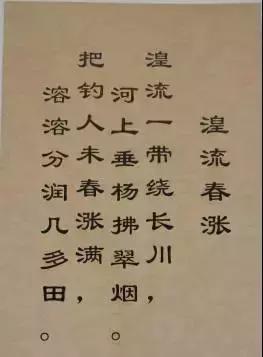 湟流春涨
湟流一带绕长川，
河上垂杨拂翠烟。
把钓人未春涨满，
溶溶分润几多田。